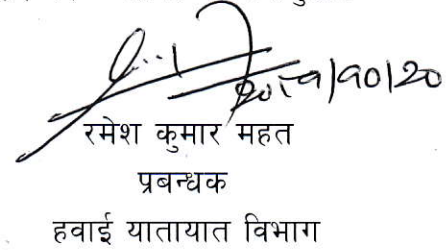 २०८१/१०/२०
रमेश कुमार महत
प्रबन्धक
हवाई यातायात विभाग